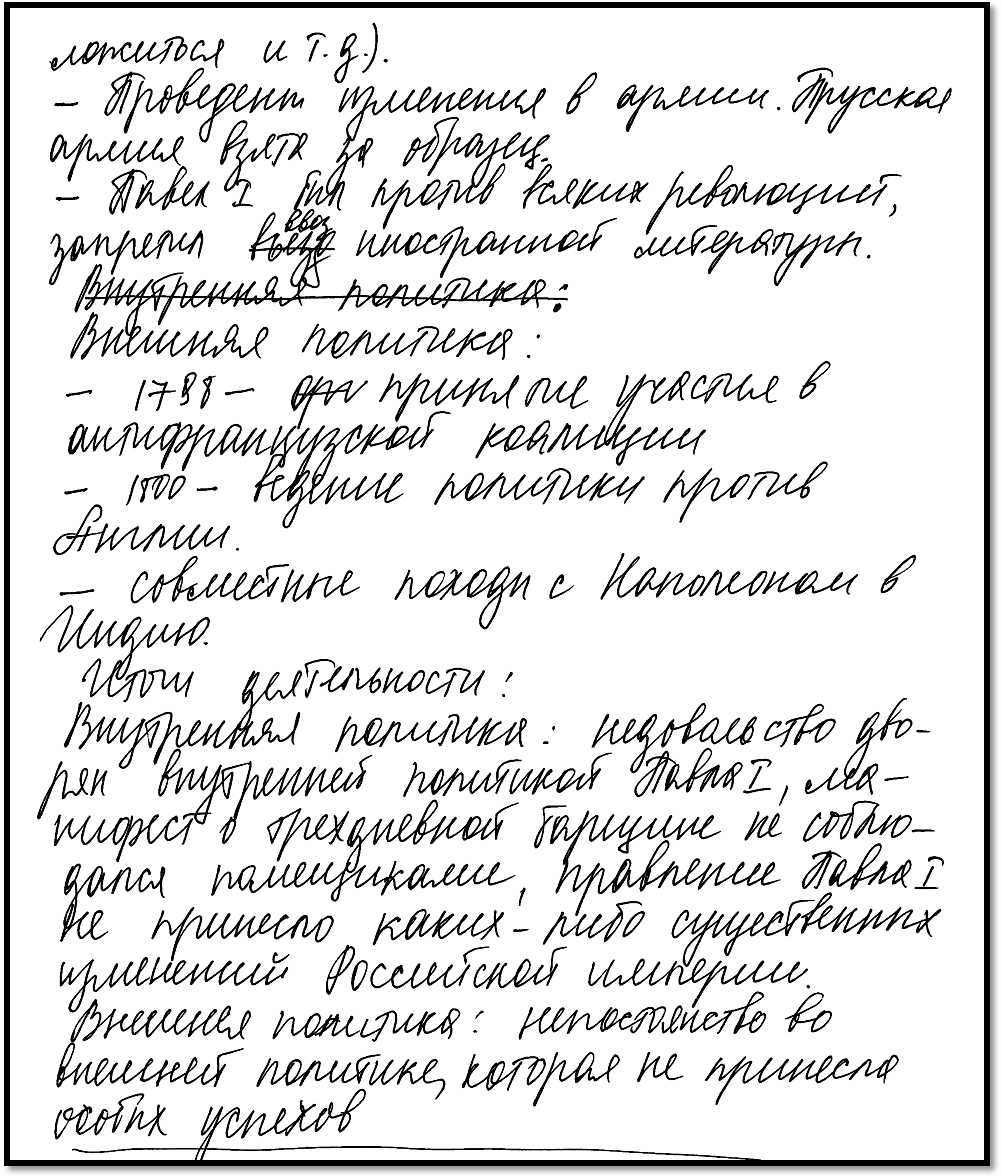 ложиться и т.д.).
– Проведены изменения в армии. Прусская
армия взята за образец.
– Павел I был против всяких революций,
запретил въезд ввоз иностранной литературы.
Внутренняя политика:
Внешняя политика:
– 1798 – принятие участия в
антифранцузской коалиции
– 1800 – ведение политики против
Англии.
– совместные походы с Наполеоном в
Индию.
Итоги деятельности:
Внутренняя политика: недовольство дво-
рян внутренней политикой Павла I, ма-
нифест о трехдневной барщине не соблю-
дался помещиками, правление Павла I
не принесло каких-либо существенных
изменений Российской империи.
Внешняя политика: непостоянство во
внешней политике, которая не принесла
особых успехов